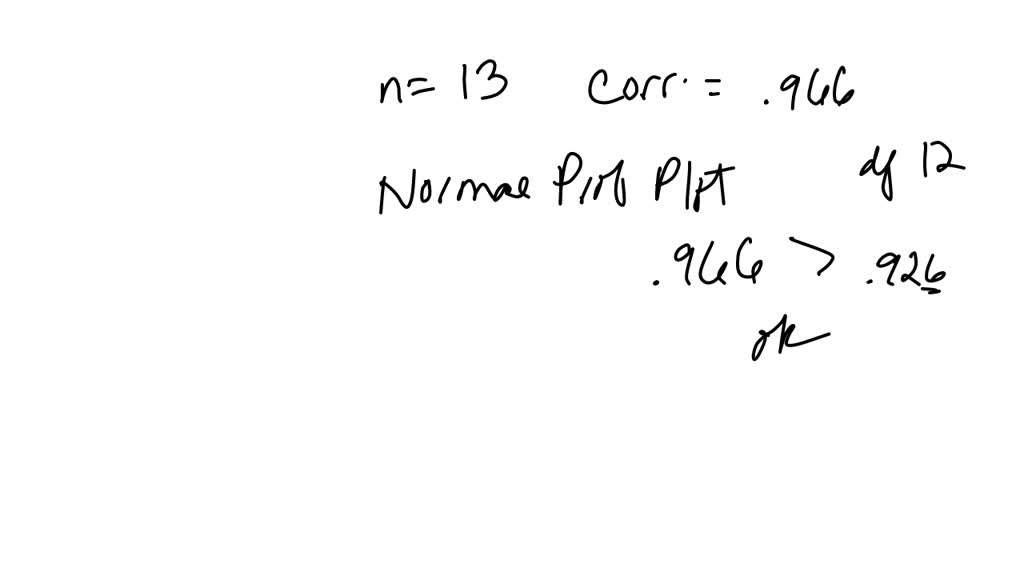 n= 13 Corr. = .966
Normal Prob Plot df 12
.966 > .926
ok